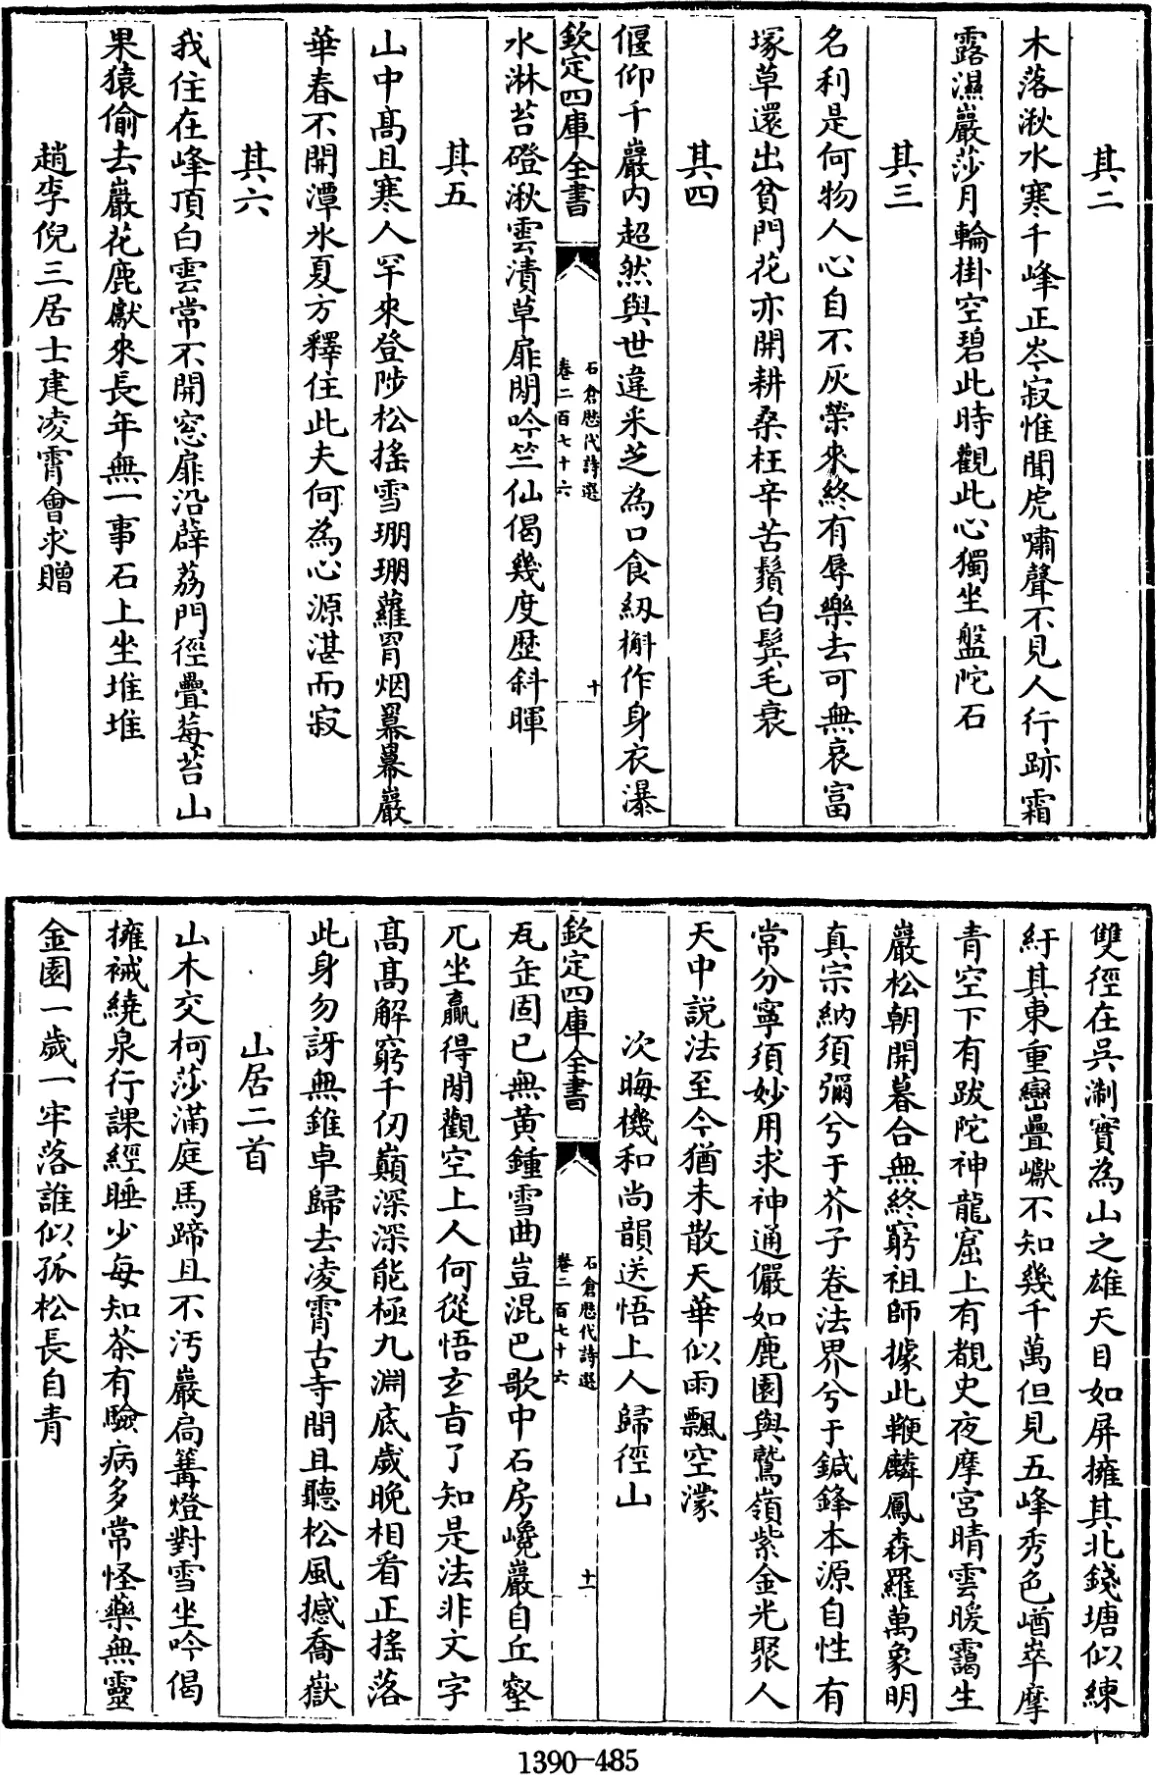 其二
木落湫水寒千峰正岑寂惟聞虎嘯聲不見人行跡霜
露濕巖莎月輪掛空碧此時觀此心獨坐盤陀石
其三
名利是何物人心自不灰榮來終有辱樂去可無哀富
塚草還出貧門花亦開耕桑枉辛苦鬚白鬂毛衰
其四
偃仰千巖內超然與世違米芝為口食紉槲作身衣瀑
欽定四庫全書
石倉歷代詩選
卷二百七十六
十
水淋苔磴湫雲漬草扉閒吟竺仙偈幾度歷斜暉
其五
山中髙且寒人罕來登陟松搖雪珊珊蘿罥烟羃羃巖
華春不開潭氷夏方釋住此夫何為心源湛而寂
其六
我住在峰頂白雲常不開窓扉沿薜荔門徑疊莓苔山
果猿偷去巖花鹿獻來長年無一事石上坐堆堆
趙李倪三居士建凌霄會求贈
雙徑在吳淛實為山之雄天目如屏擁其北錢塘似練
紆其東重巒疊巘不知幾千萬但見五峰秀色崷崒摩
青空下有跋陀神龍窟上有覩史夜摩宮晴雲暖靄生
巖松朝開暮合無終窮祖師據此鞭麟鳳森羅萬象明
真宗納須彌兮于芥子卷法界兮于鍼鋒本源自性有
常分寧須妙用求神通儼如鹿園與鷲嶺紫金光聚人
天中説法至今猶未散天華似雨飄空濛
次晦機和尚韻送悟上人歸徑山
欽定四庫全書
石倉歷代詩選
卷二百七十六
十一
瓦缶固已無黃鍾雪曲豈混巴歌中石房巉巖自丘壑
兀坐贏得閒觀空上人何從悟玄旨了知是法非文字
髙髙解窮千仞巔深深能極九淵底歲晚相看正搖落
此身勿訝無錐卓歸去凌霄古寺間且聽松風撼喬嶽
山居二首
山木交柯莎滿庭馬蹄且不汚巖扃篝燈對雪坐吟偈
擁裓繞泉行課經睡少每知茶有驗病多常怪藥無靈
金園一歲一牢落誰似孤松長自青
1390—485